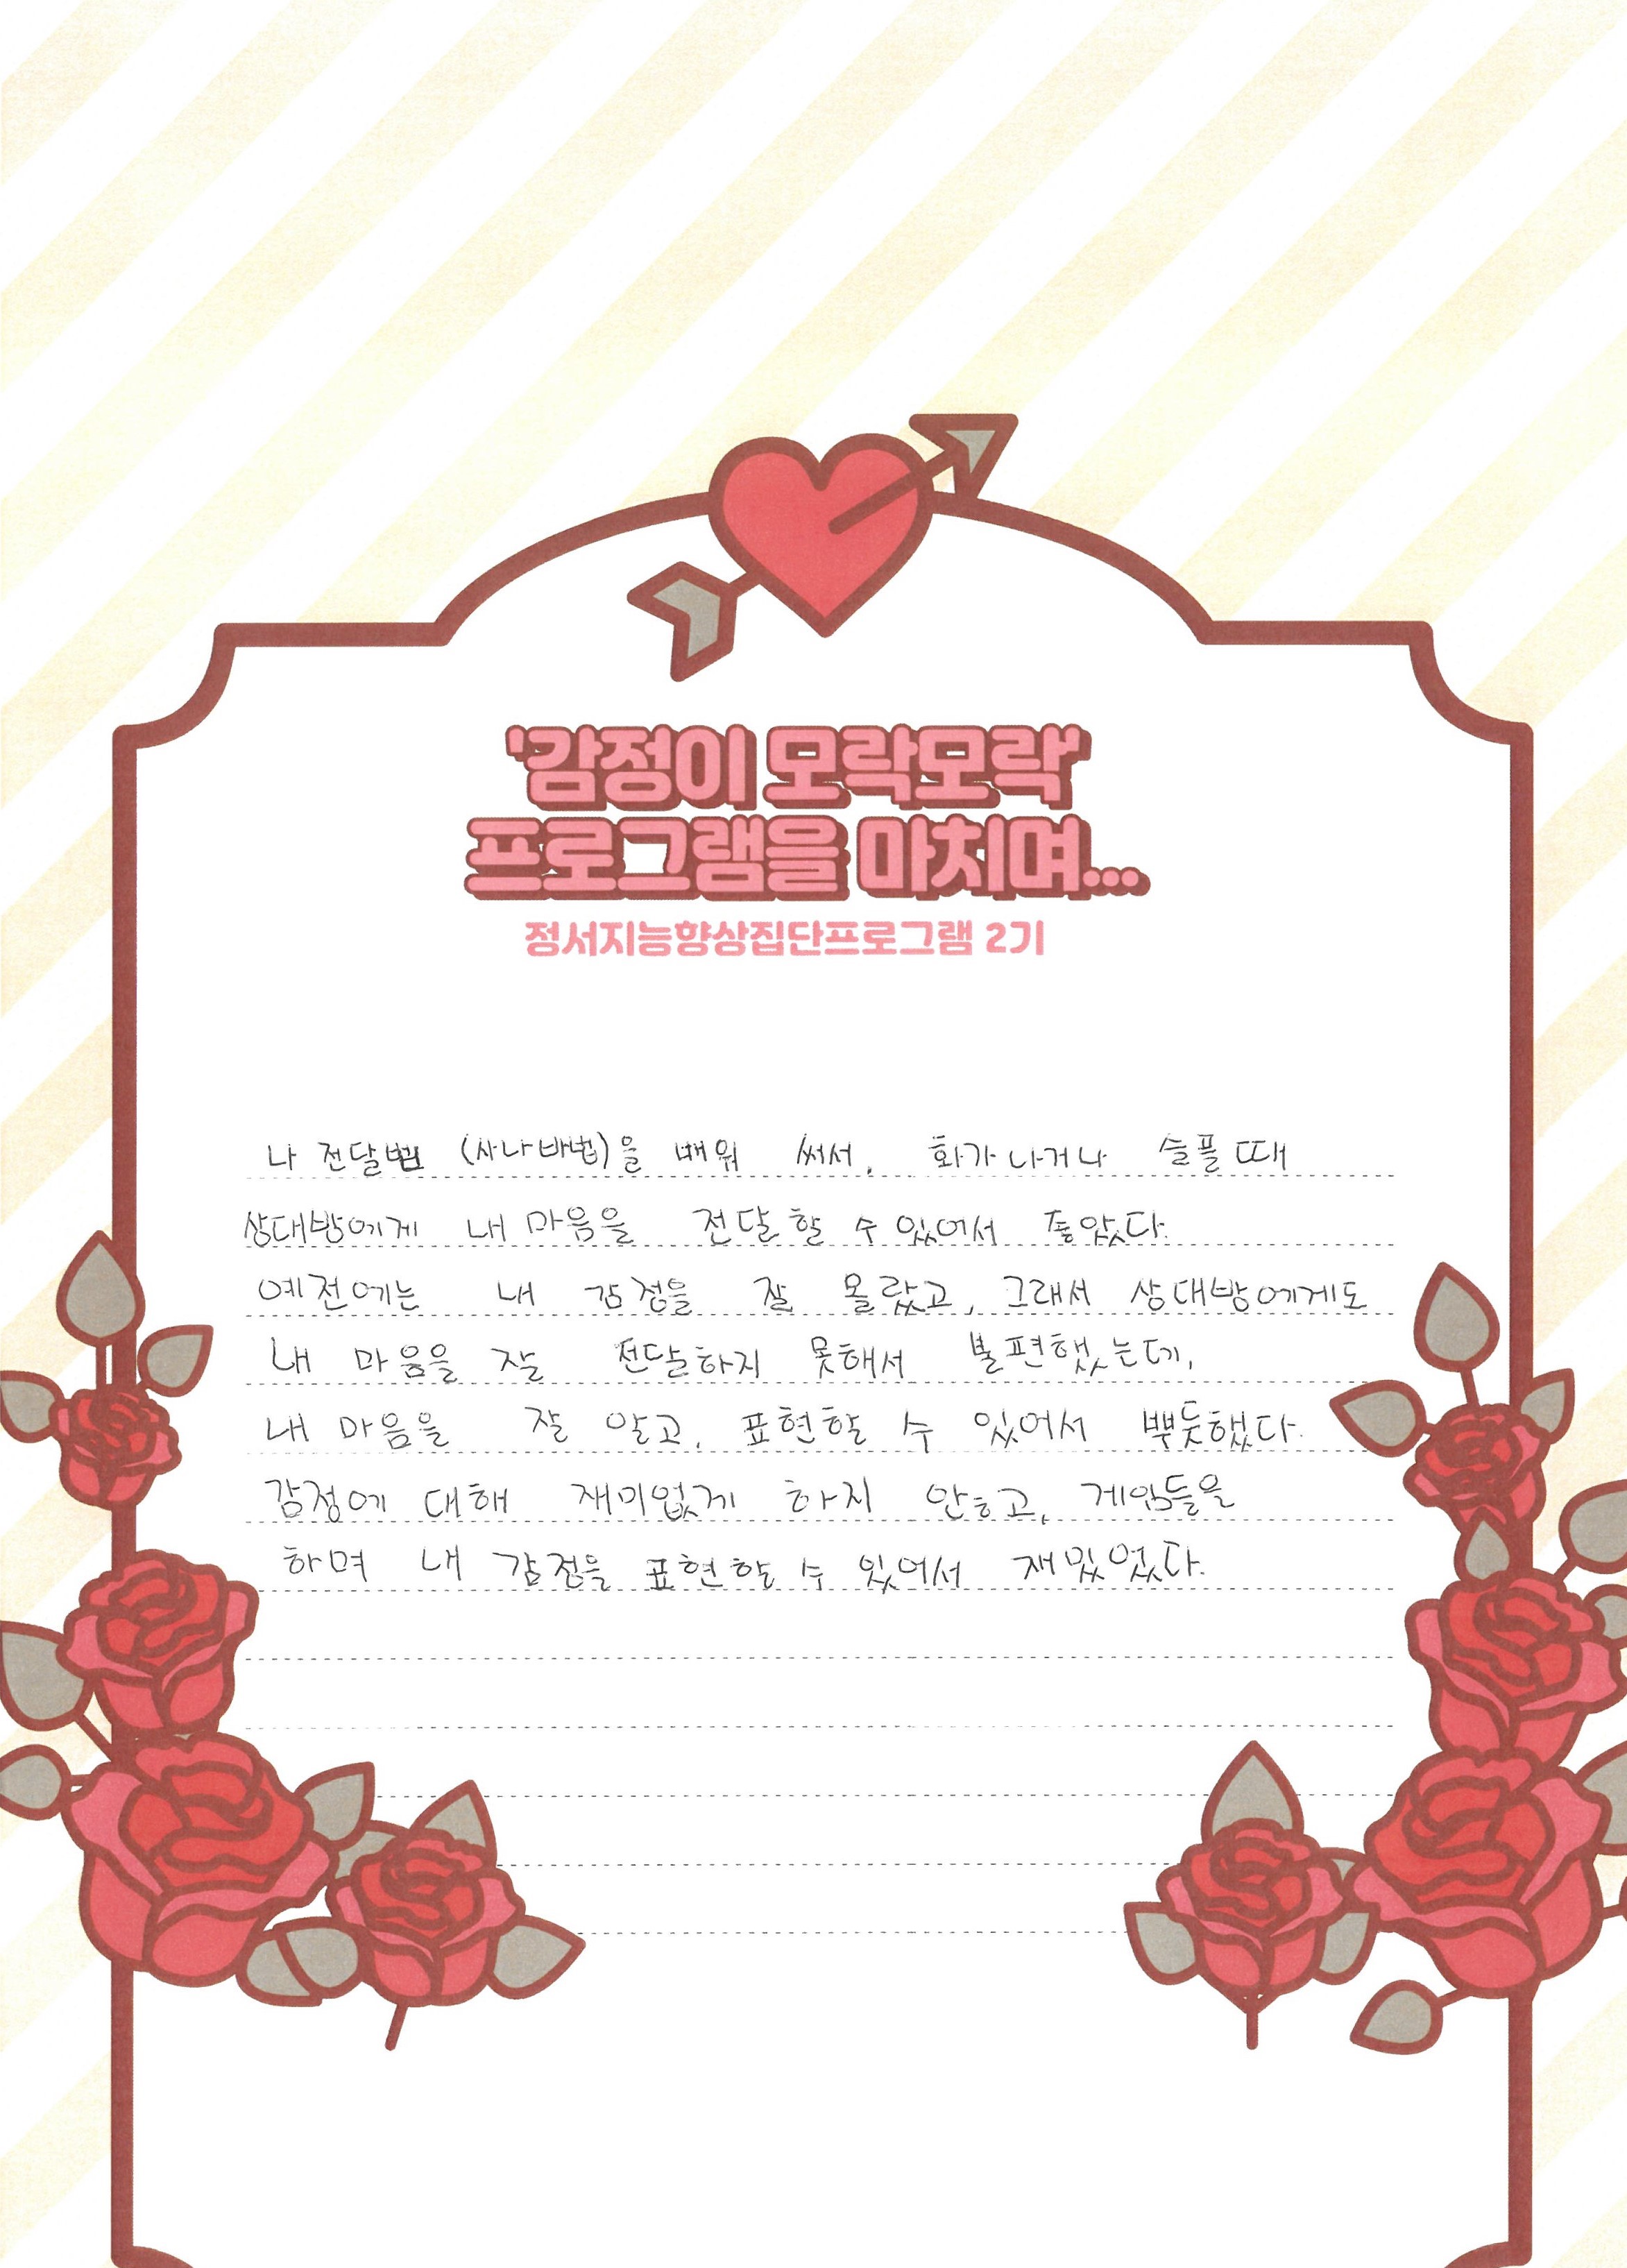 '감정이 모락모락'
프로그램을 마치며...
정서지능향상집단프로그램 2기
나 전달법 (사나바법)을 배워 써서, 화가나거나 슬플때
상대방에게 내 마음을 전달할 수 있어서 좋았다.
예전에는 내 감정을 잘 몰랐고, 그래서 상대방에게도
내 마음을 잘 전달하지 못해서 불편했는데,
내 마음을 잘 알고, 표현할 수 있어서 뿌듯했다.
감정에 대해 재미없게 하지 안하고, 게임들을
하며 내 감정을 표현할 수 있어서 재밌었다.